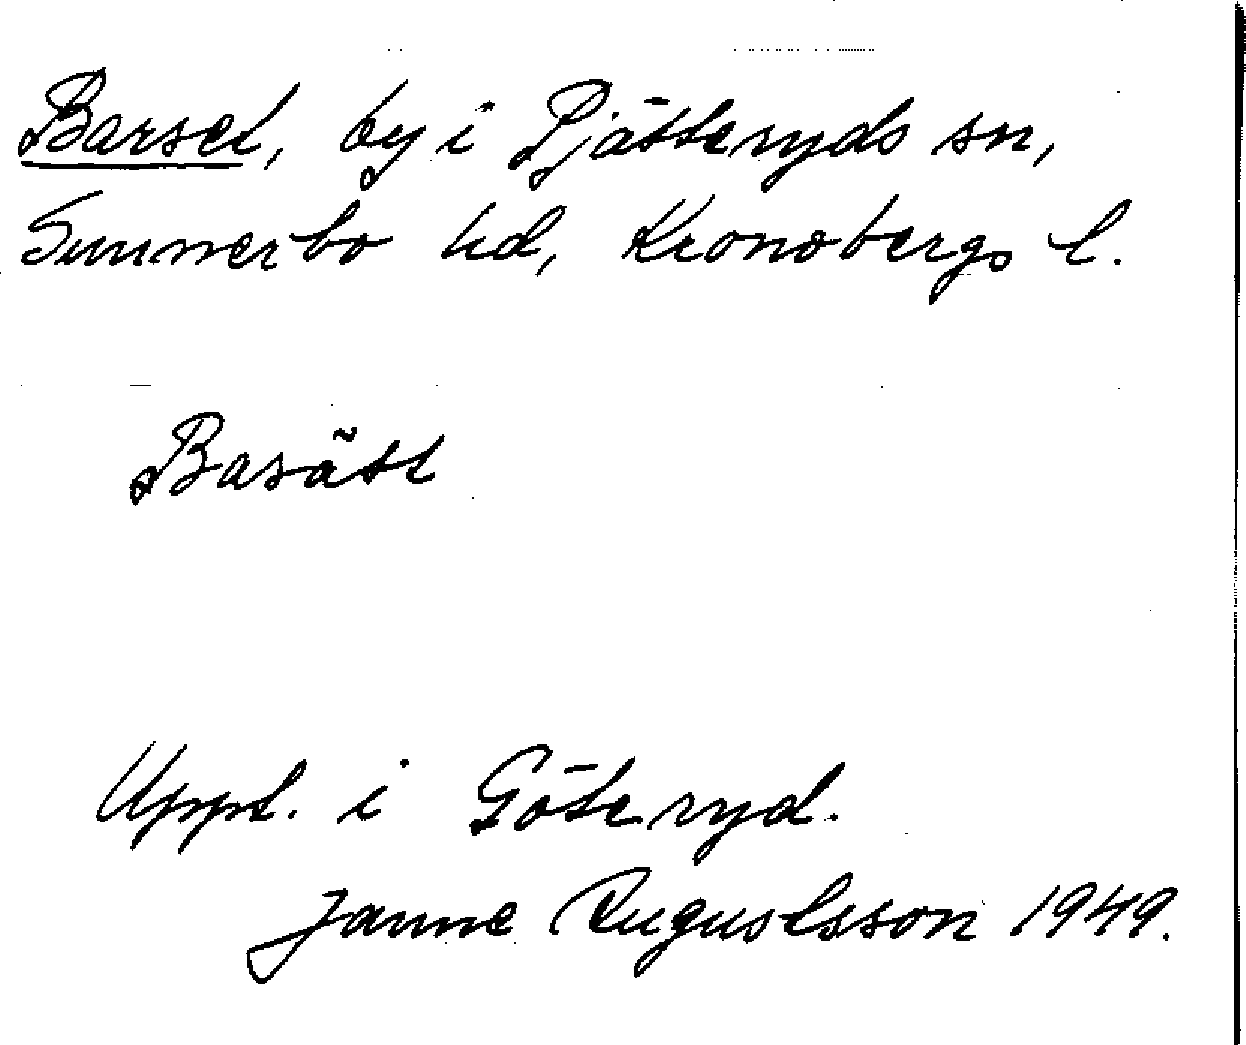 Barset, by i Pjätteryds sn,
Sunnerbo hd, Kronobergs l.
Basätt
Uppt. i Göteryd.
Janne Augustsson 1949.